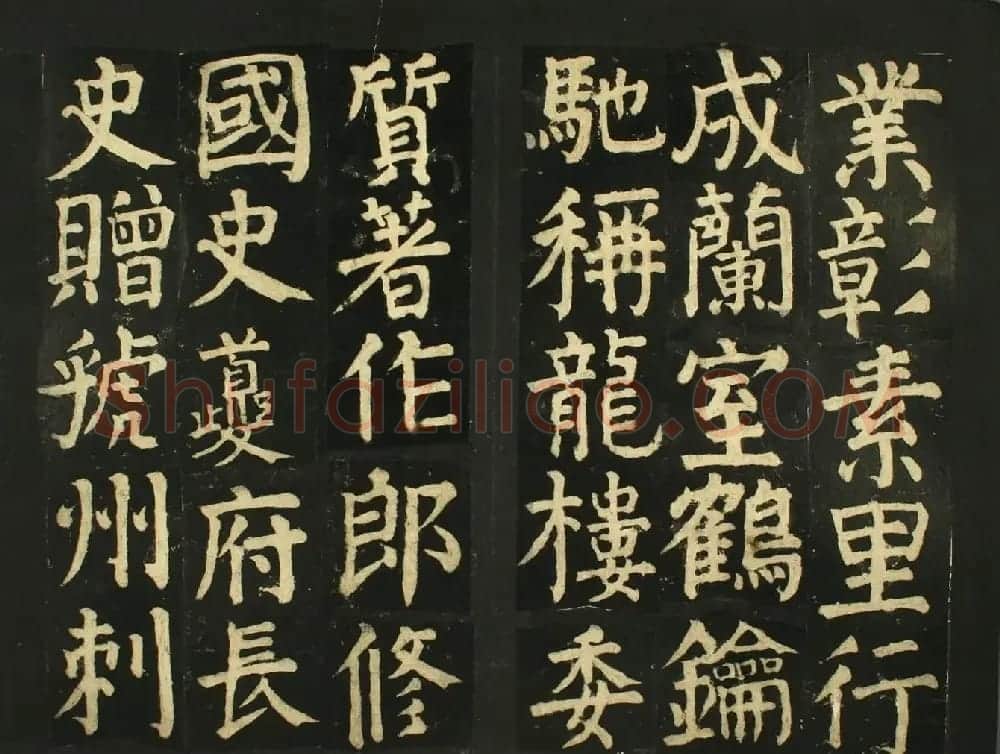 業彰素里行
成蘭室鶴鑰
馳稱龍樓委
質著作郎修
國史夔府長
史贈虢州刺
Shufaziliao.COM